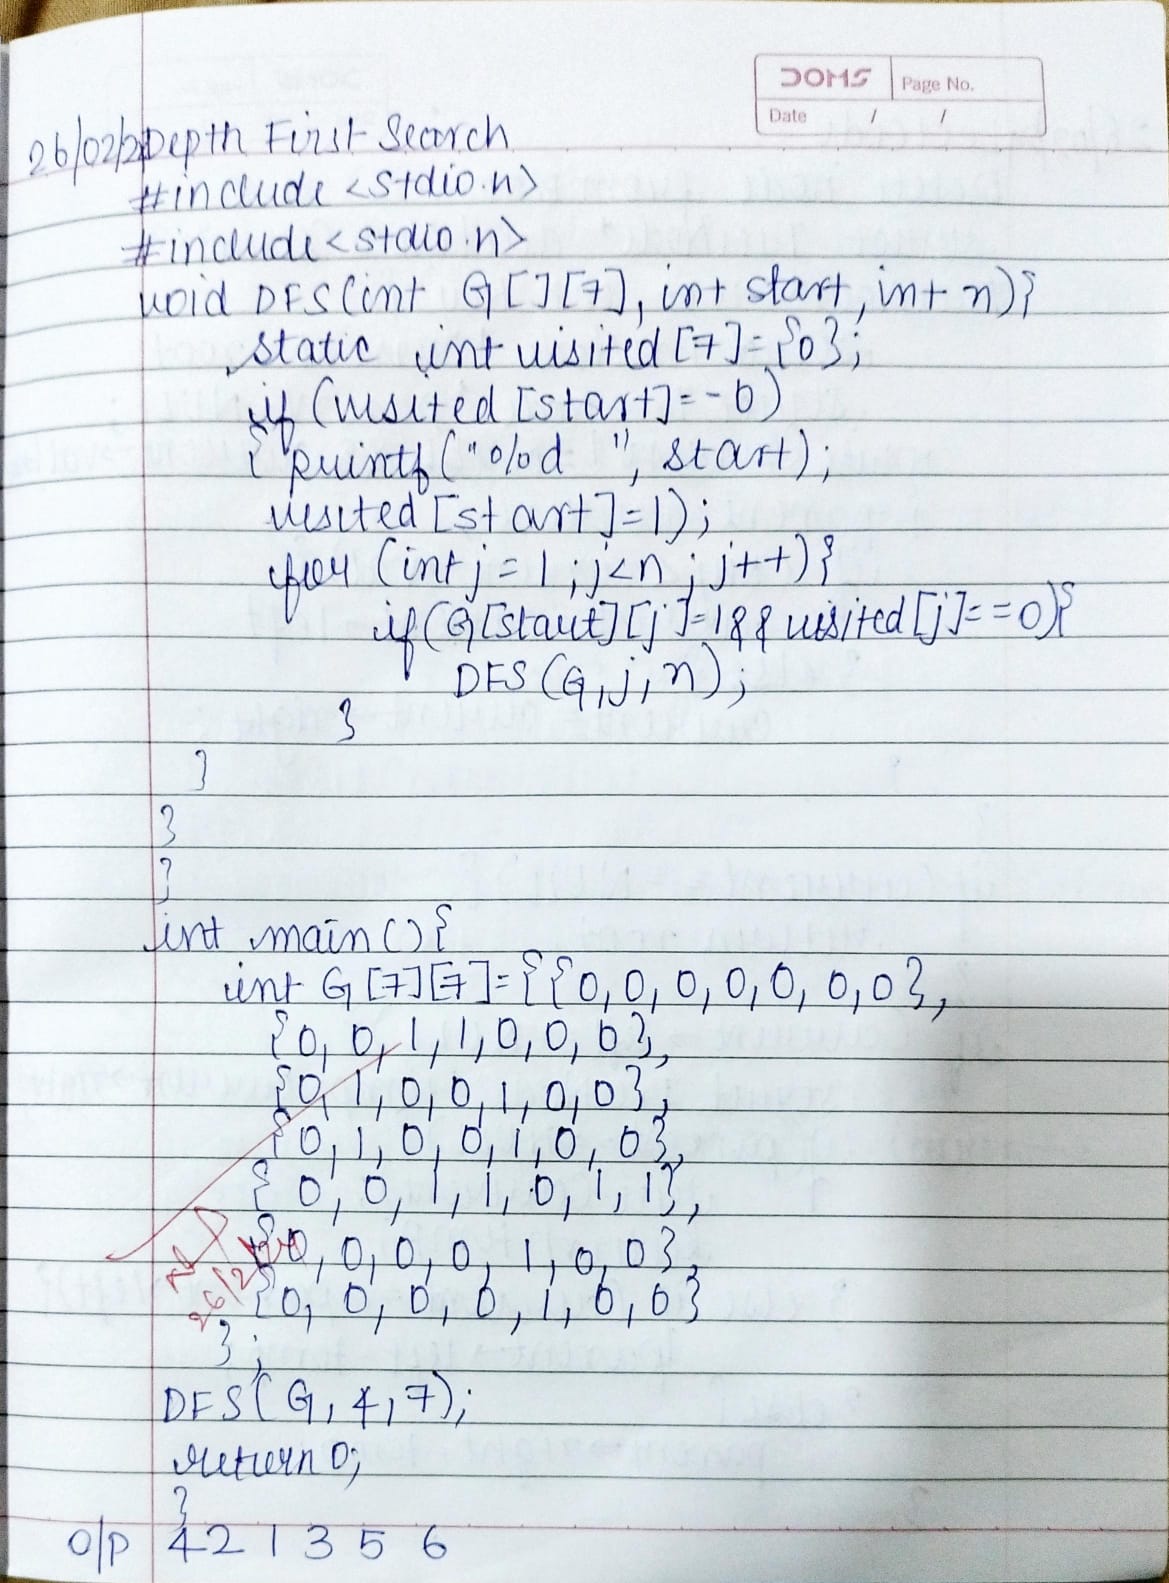 DOMS Page No.
Date / /
26/02/2 Depth First Search
#include <stdio.h>
#include <stdlo.h>
void DFS(int G[][7], int start, int n){
static int visited[7]={0};
if (visited[start]==0)
{ printf("%d ", start);
visited[start]=1);
for (int j=1;j<n;j++){
if(G[start][j]=1&& visited[j]==0){
DFS(G,j,n);
}
}
}
}
int main(){
int G[7][7]={{0,0,0,0,0,0,0},
{0,0,1,1,0,0,0},
{0,1,0,0,1,0,0},
{0,1,0,0,1,0,0},
{0,0,1,1,0,1,1},
{0,0,0,0,1,0,0},
{0,0,0,0,1,0,0}
};
DFS(G,4,7);
return 0;
}
O/P 4 2 1 3 5 6